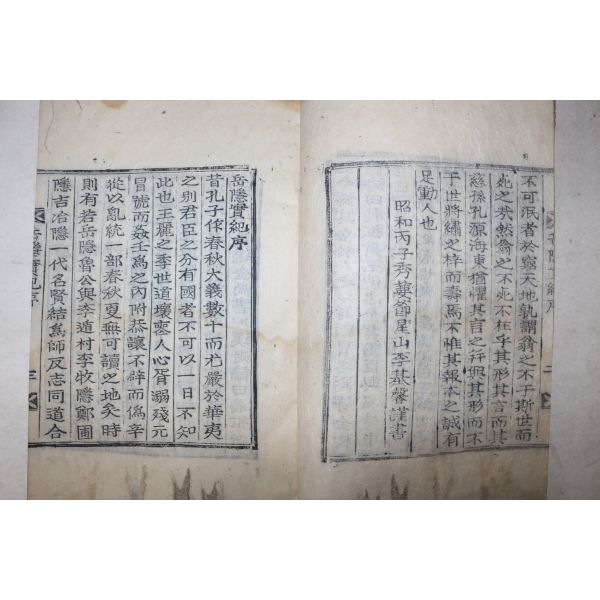 不可泯者於窮天地孰謂翁之不于斯世而
死之哉然翁之不死不在乎其形其言而其
慈孫孔源海東猶懼其言之行與其形而不
于世將繡之梓而壽焉不惟其報本之誠有
足動人也
昭和丙子秀葽節星山李基馨謹書
岳隱實紀序
昔孔子作春秋大義數十而尤嚴於華夷
之別君臣之分有國者不可以一日不知
此也王麗之季世道壞亂人心胥溺殘元
冒號而姦壬爲之內附恭讓不辟而僞辛
從以亂統一部春秋更無可讀之地矣時
則有若岳隱魯公與李遁村李牧隱鄭圃
隱吉冶隱一代名賢結爲師友志同道合
岳隱實紀序